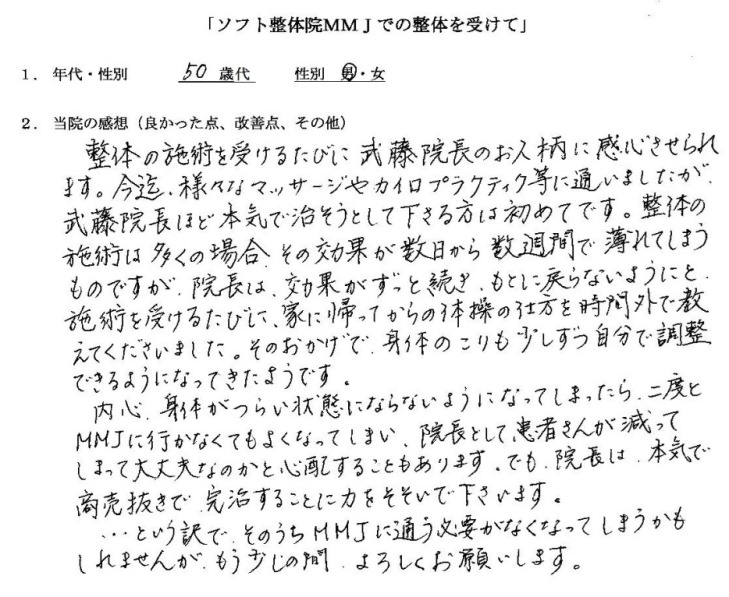 「ソフト整体院MMJでの整体を受けて」
1. 年代・性別 50 歳代 性別 男・女
2. 当院の感想（良かった点、改善点、その他）
整体の施術を受けるたびに武藤院長のお人柄に感心させられ
ます。今迄、様々なマッサージやカイロプラクティク等に通いましたが、
武藤院長ほど本気で治そうとして下さる方は初めてです。整体の
施術は多くの場合、その効果が数日から数週間で薄れてしまう
ものですが、院長は、効果がずっと続き、もとに戻らないようにと、
施術を受けるたびに、家に帰ってからの体操の仕方を時間外で教
えてくださいました。そのおかげで、身体のこりも少しずつ自分で調整
できるようになってきたようです。
内心、身体がつらい状態にならないようになってしまったら、二度と
MMJに行かなくてもよくなってしまい、院長として患者さんが減って
しまって大丈夫なのかと心配することもあります。でも、院長は、本気で
商売抜きで、完治することに力をそそいで下さいます。
…という訳で、そのうちMMJに通う必要がなくなってしまうかも
しれませんが、もう少しの間、よろしくお願いします。